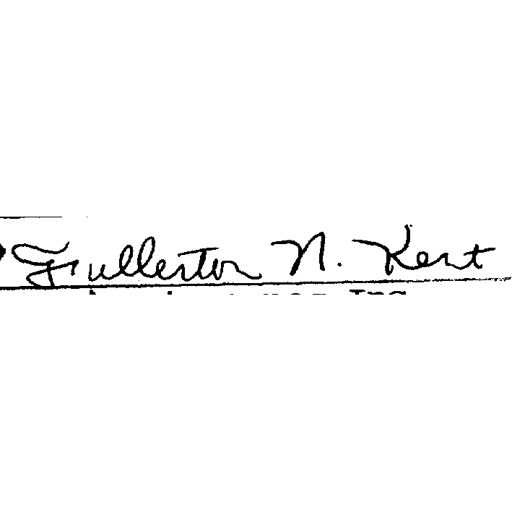 Fullerton N. Kent